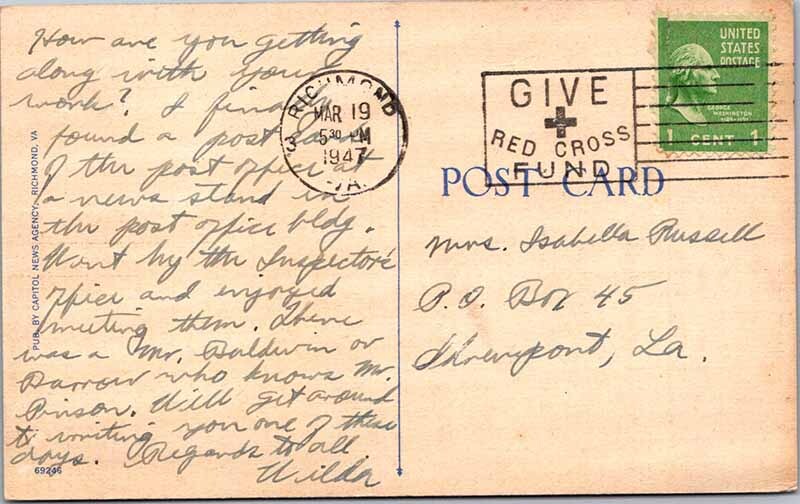 How are you getting
along with your
work? I finally
found a post card
of the post office at
a news stand in
the post office bldg.
Went by the Inspector's
office and enjoyed
meeting them. There
was a Mr. Baldwin or
Darrow who knows Mr.
Pinson. Will get around
to writing you one of these
days. Regards to all
Wilda
69246
PUB. BY CAPITOL NEWS AGENCY, RICHMOND, VA
RICHMOND
MAR 19
5 30 PM
1947
VA.
3
GIVE
RED CROSS
FUND
UNITED
STATES
POSTAGE
GEORGE
WASHINGTON
1 CENT 1
POST CARD
Mrs. Isabella Russell
P.O. Box 45
Shreveport, La.